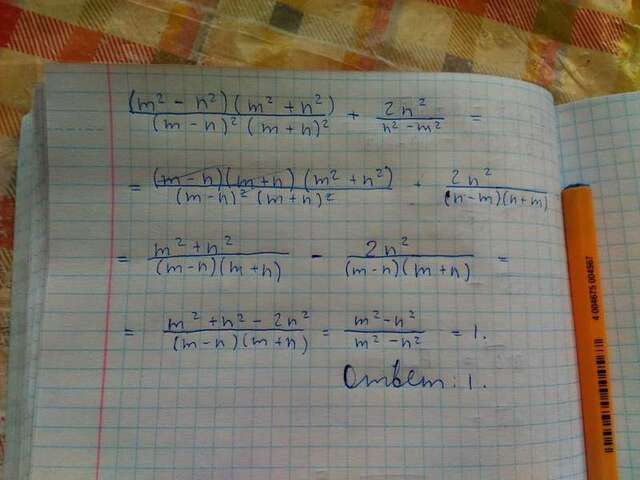 (m² - n²)(m² + n²)/(m - n)²(m + n)² + 2n²/n² - m² =
= (m - n)(m + n)(m² + n²)/(m - n)²(m + n)² + 2n²/(n - m)(n + m)
= m² + n²/(m - n)(m + n) - 2n²/(m - n)(m + n) =
= m² + n² - 2n²/(m - n)(m + n) = m² - n²/m² - n² = 1.
Ответ: 1.
4 004675 004567